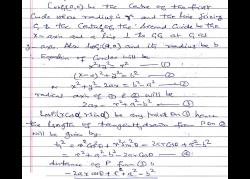 Let C₁(0,0) be the Centre of the first
Circle whose radius is 'r' and the line joining
C₁ & the Centre C₂ of the Second Circle be the
X-axis and a line ⊥ to C₁C₂ at C₁ as
y-axis. Also let C₂(a,0) and its radius be b
∴ Equation of Circles will be
x²+y²=r² — ①
(x-a)²+y²=b² — ②
x²+y²-2ax=b²-a²
radical axis of ① & ② will be
2ax = r²+a²-b² — ③
Let P(rcosθ, rsinθ) be any point on ①, hence
the length of tangent drawn from P on ②
will be given by
t² = r²cos²θ+r²sin²θ-2arcosθ+a²-b²
= r²+a²-b²-2arcosθ — ④
distance of P from ③ is
-2ar cosθ+r²+a²-b²